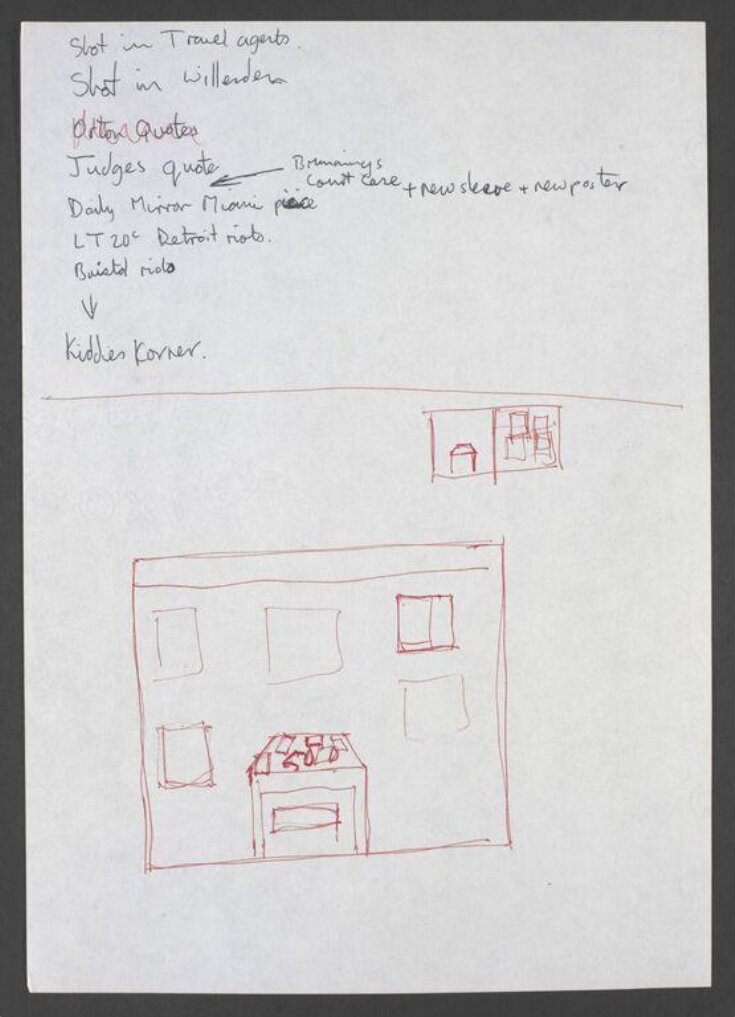 Shot in Travel agents.
Shot in Willesden
Orton Quotes
Judges quote
Brunnings
Court Case + new sleeve + new poster
Daily Mirror Miami piece
LT 20c Detroit riots.
Bristol riots
Kiddies Korner.